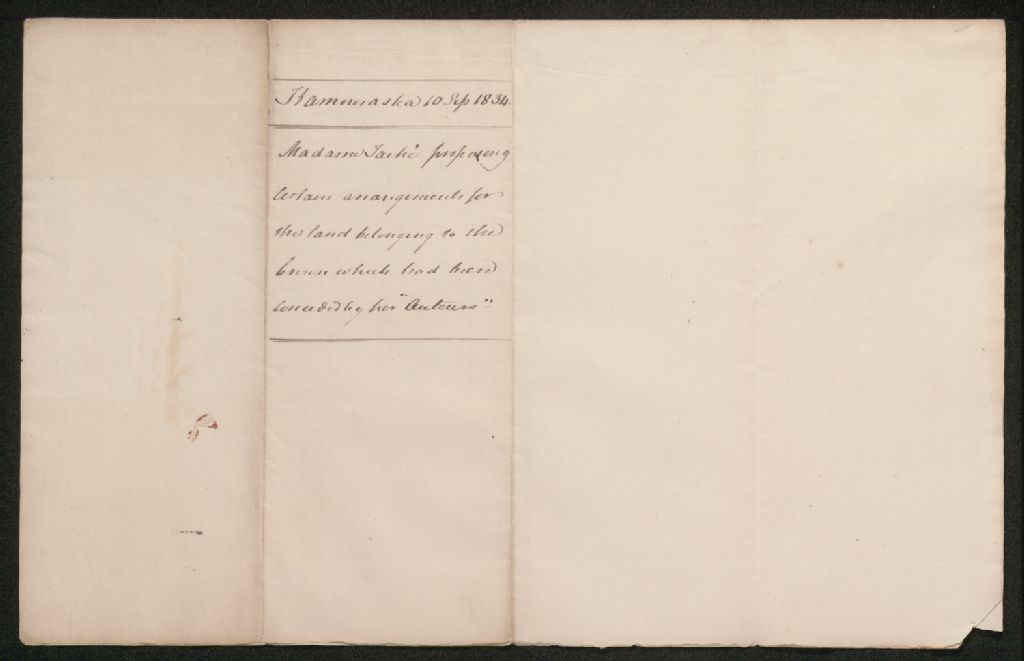 Kamouraska 10 Sep 1834
Madame Taché proposing
certain arrangements for
the land belonging to the
Crown which had been
conceded by her "Auteurs"